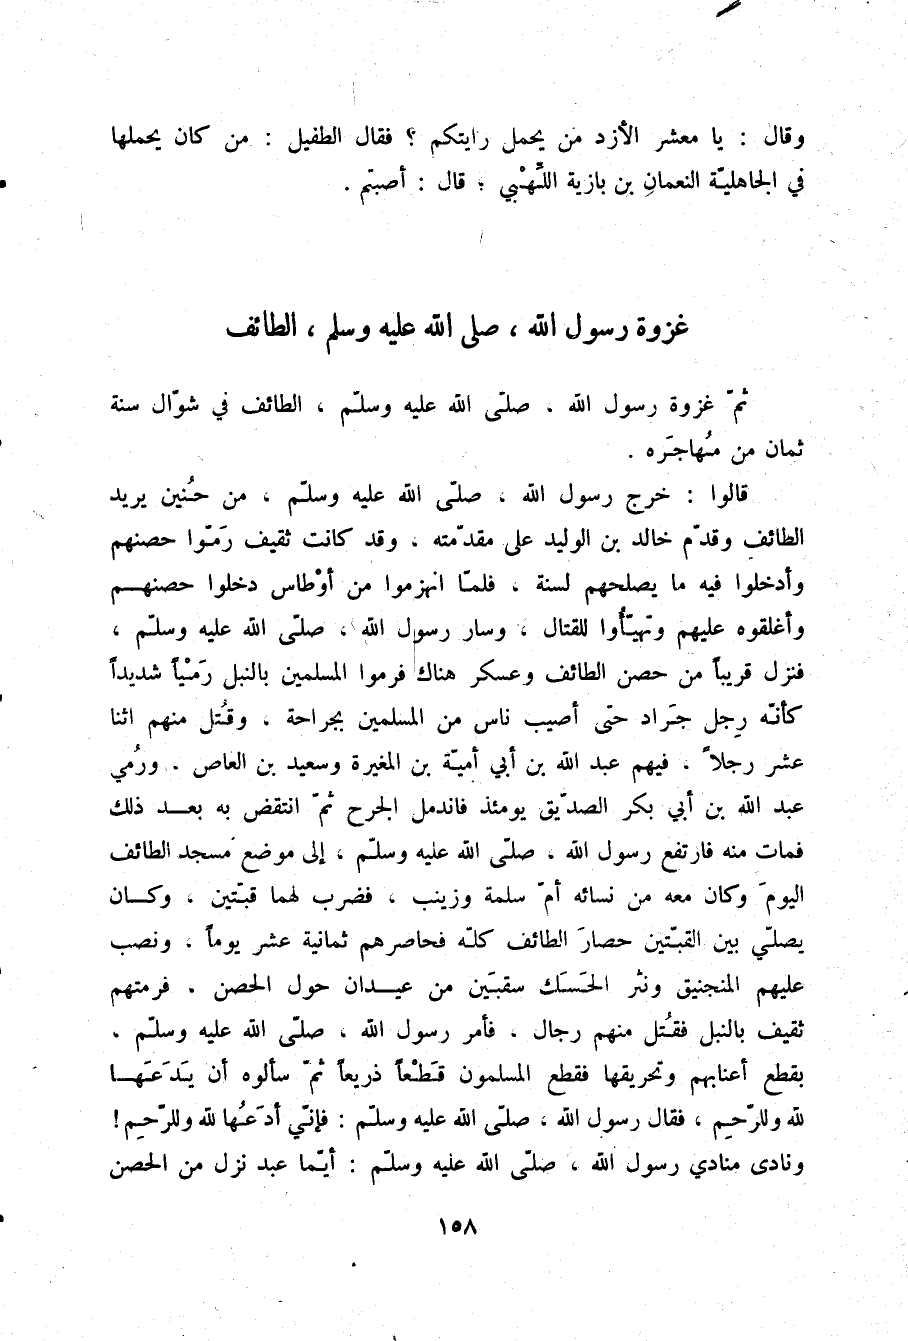 وقال : يا معشر الأزد من يحمل رايتكم ؟ فقال الطفيل : من كان يحملها
في الجاهليّة النعمانِ بن بازية اللِّهْبي ؛ قال : أصبتم .
غزوة رسول الله ، صلى الله عليه وسلم ، الطائف
ثمّ غزوة رسول الله ، صلّى الله عليه وسلّم ، الطائف في شوّال سنة
ثمان من مُهاجَره .
قالوا : خرج رسول الله ، صلّى الله عليه وسلّم ، من حُنين يريد
الطائف وقدّم خالد بن الوليد على مقدّمته ، وقد كانت ثقيف رَمّوا حصنهم
وأدخلوا فيه ما يصلحهم لسنة ، فلمّا انهزموا من أوْطاس دخلوا حصنهم
وأغلقوه عليهم وتهيّأُوا للقتال ، وسار رسول الله ، صلّى الله عليه وسلّم ،
فنزل قريباً من حصن الطائف وعسكر هناك فرموا المسلمين بالنبل رَمْياً شديداً
كأنّه رِجل جَراد حتّى أصيب ناس من المسلمين بجراحة ، وقُتل منهم اثنا
عشر رجلاً ، فيهم عبد الله بن أبي أميّة بن المغيرة وسعيد بن العاص . ورُمي
عبد الله بن أبي بكر الصدّيق يومئذ فاندمل الجرح ثمّ انتقض به بعد ذلك
فمات منه فارتفع رسول الله ، صلّى الله عليه وسلّم ، إلى موضع مسجد الطائف
اليومَ وكان معه من نسائه أمّ سلمة وزينب ، فضرب لهما قبّتين ، وكان
يصلّي بين القبّتين حصارَ الطائف كلّه فحاصرهم ثمانية عشر يوماً ، ونصب
عليهم المنجنيق ونثر الحَسَك سقبَين من عيدان حول الحصن . فرمتهم
ثقيف بالنبل فقُتل منهم رجال . فأمر رسول الله ، صلّى الله عليه وسلّم ،
بقطع أعنابهم وتحريقها فقطع المسلمون قَطْعاً ذريعاً ثمّ سألوه أن يَدَعَها
لله وللرّحِم ، فقال رسول الله ، صلّى الله عليه وسلّم : فإنّي أدَعُها لله وللرّحِم !
ونادى منادي رسول الله ، صلّى الله عليه وسلّم : أيّما عبد نزل من الحصن
١٥٨